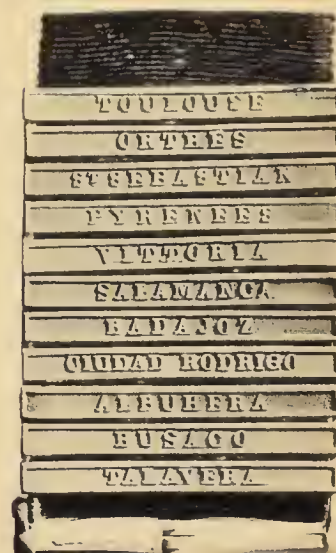 TOULOUSE
ORTHES
ST SEBASTIAN
PYRENEES
VITTORIA
SALAMANCA
BADAJOZ
CIUDAD RODRIGO
ALBUHERA
BUSACO
TALAVERA